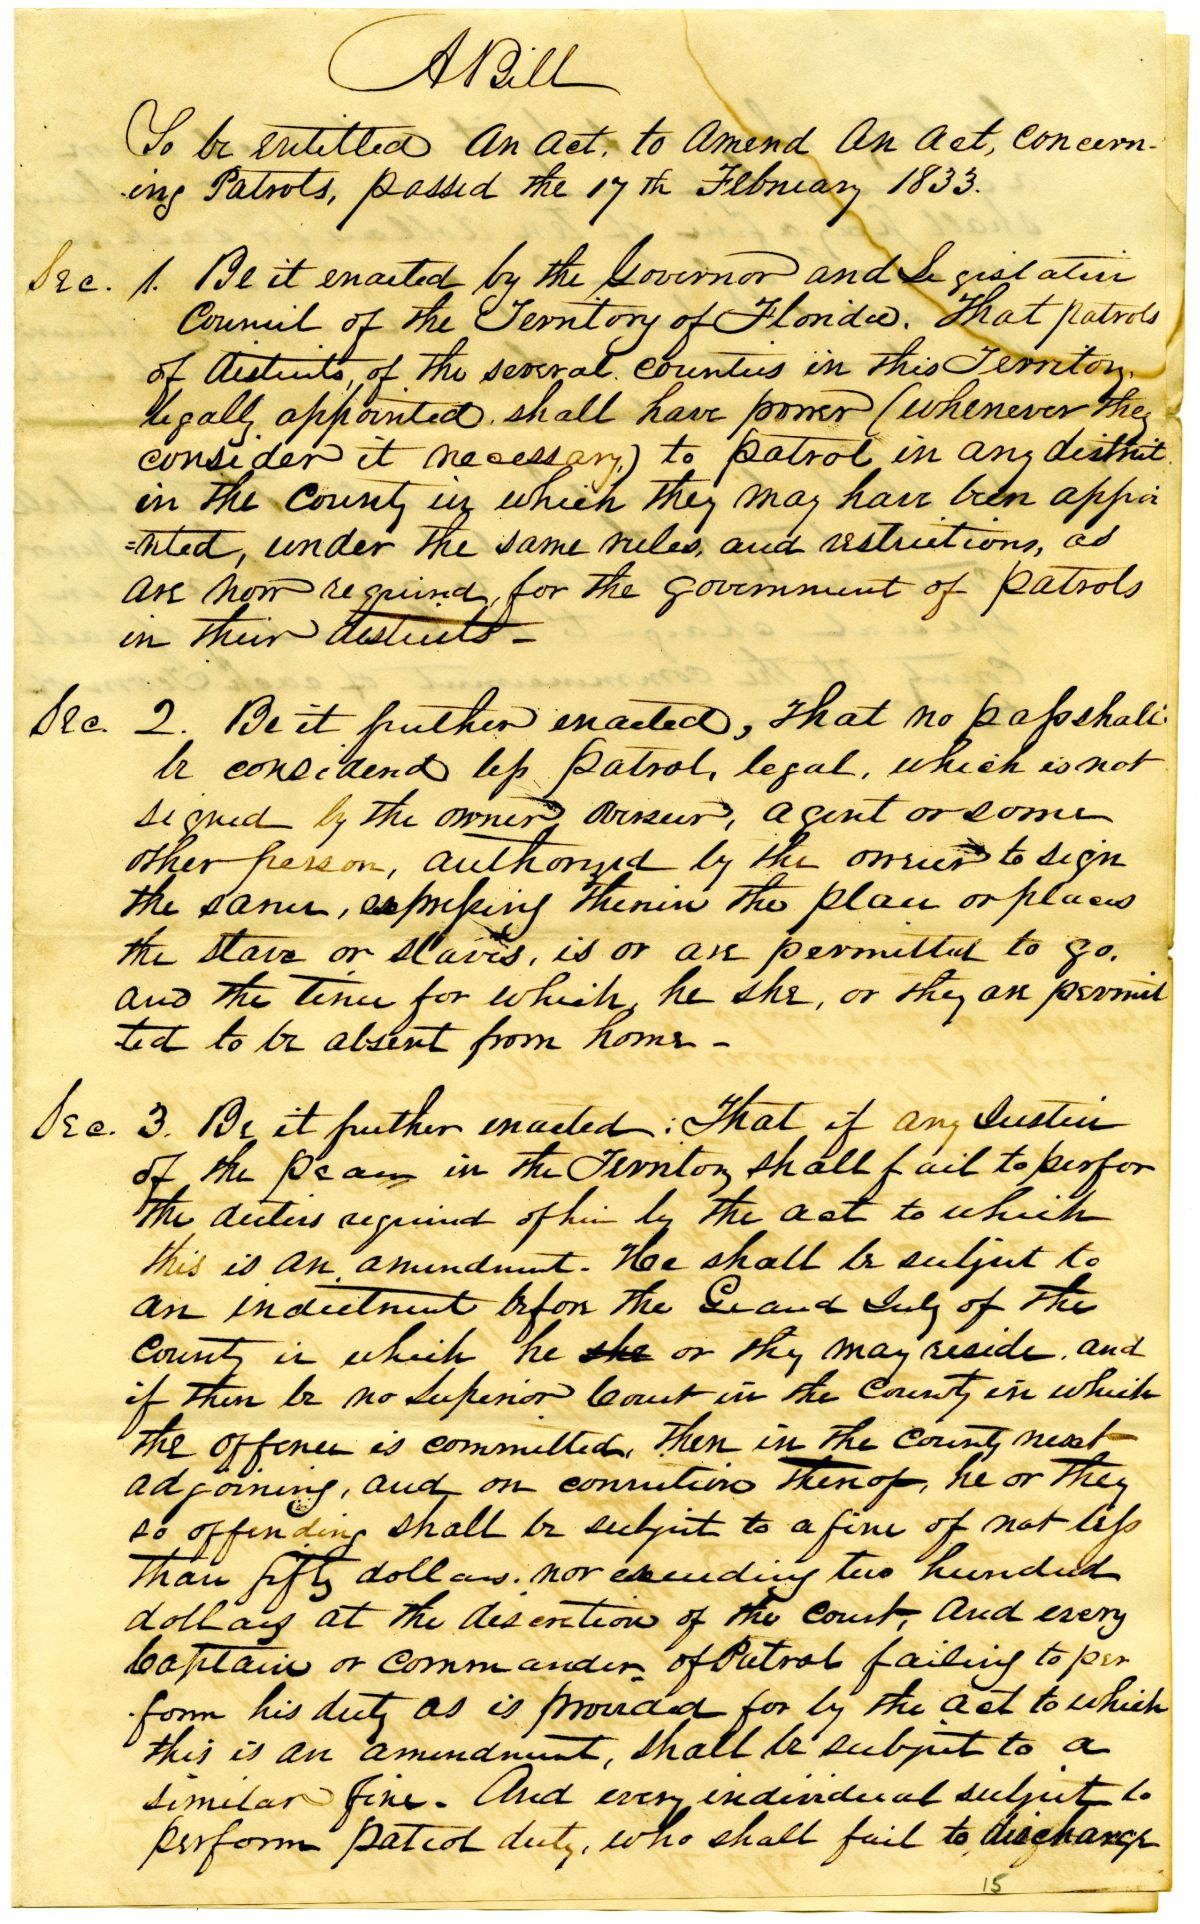 A Bill
To be entitled An Act, to Amend An Act, Concern-
ing Patrols, passed the 17th February 1833.
Sec. 1. Be it enacted by the Governor and Legislative
Council of the Territory of Florida. That patrols
of districts, of the several counties in this Territory,
legally appointed, shall have power (whenever they
consider it necessary,) to patrol in any district
in the County in which they may have been appoi
=nted, under the same rules, and restrictions, as
are now required, for the government of patrols
in their districts -
Sec. 2. Be it further enacted, that no pass shall
be considered by Patrol, legal, which is not
signed by the owner, overseer, agent or some
other person, authorized by the owner to sign
the same, expressing therein the place or places
the slave or slaves, is or are permitted to go,
and the time for which, he she, or they are permit
ted to be absent from home -
Sec. 3. Be it further enacted: That if any Justice
of the peace in the Territory shall fail to perfor
the duties required of him by the act to which
this is an amendment - He shall be subject to
an indictment before the Grand Jury of the
County in which he she or they may reside, and
if there be no Superior Court in the County in which
the offence is committed, then in the county next
adjoining, and on conviction thereof, he or they
so offending shall be subject to a fine of not less
than fifty dollars, nor exceeding two hundred
dollars at the discretion of the court, And every
Captain or commander of Patrol failing to per
form his duty as is provided for by the act to which
this is an amendment, shall be subject to a
similar fine - And every individual subject to
perform patrol duty, who shall fail to discharge
15